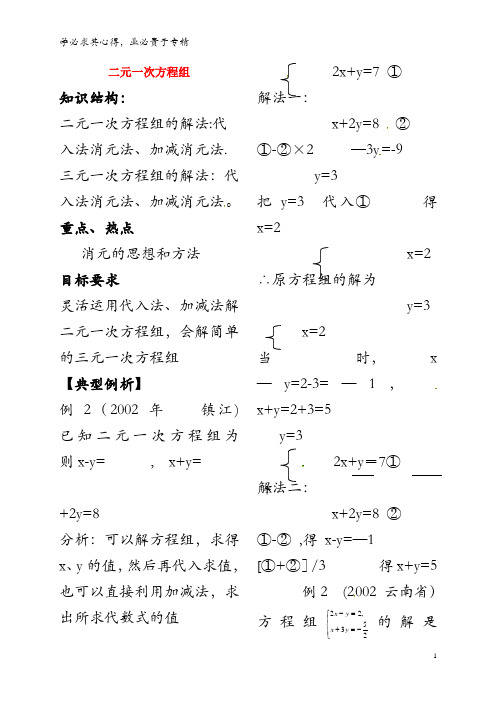 学必求其心得，业必贵于专精
二元一次方程组
知识结构：
二元一次方程组的解法:代
入法消元法、加减消元法.
三元一次方程组的解法：代
入法消元法、加减消元法。
重点、热点
消元的思想和方法
目标要求
灵活运用代入法、加减法解
二元一次方程组，会解简单
的三元一次方程组
【典型例析】
例 2（2002 年 镇江)
已知二元一次方程组为
则x-y= , x+y=
+2y=8
分析：可以解方程组，求得
x、y的值，然后再代入求值，
也可以直接利用加减法，求
出所求代数式的值
2x+y=7 ①
解法一：
x+2y=8 . ②
①-②×2 —3y=-9
y=3
把 y=3 代入① 得
x=2
x=2
∴原方程组的解为
y=3
x=2
当 时， x
— y=2-3= — 1 ，
x+y=2+3=5
y=3
2x+y＝7①
解法二：
x+2y=8 ②
①-② ,得 x-y=—1
[①+②］/3 得x+y=5
例2 (2002 云南省）
方程组 { 2x-y=2, x+3y=-5/2 的解是
1